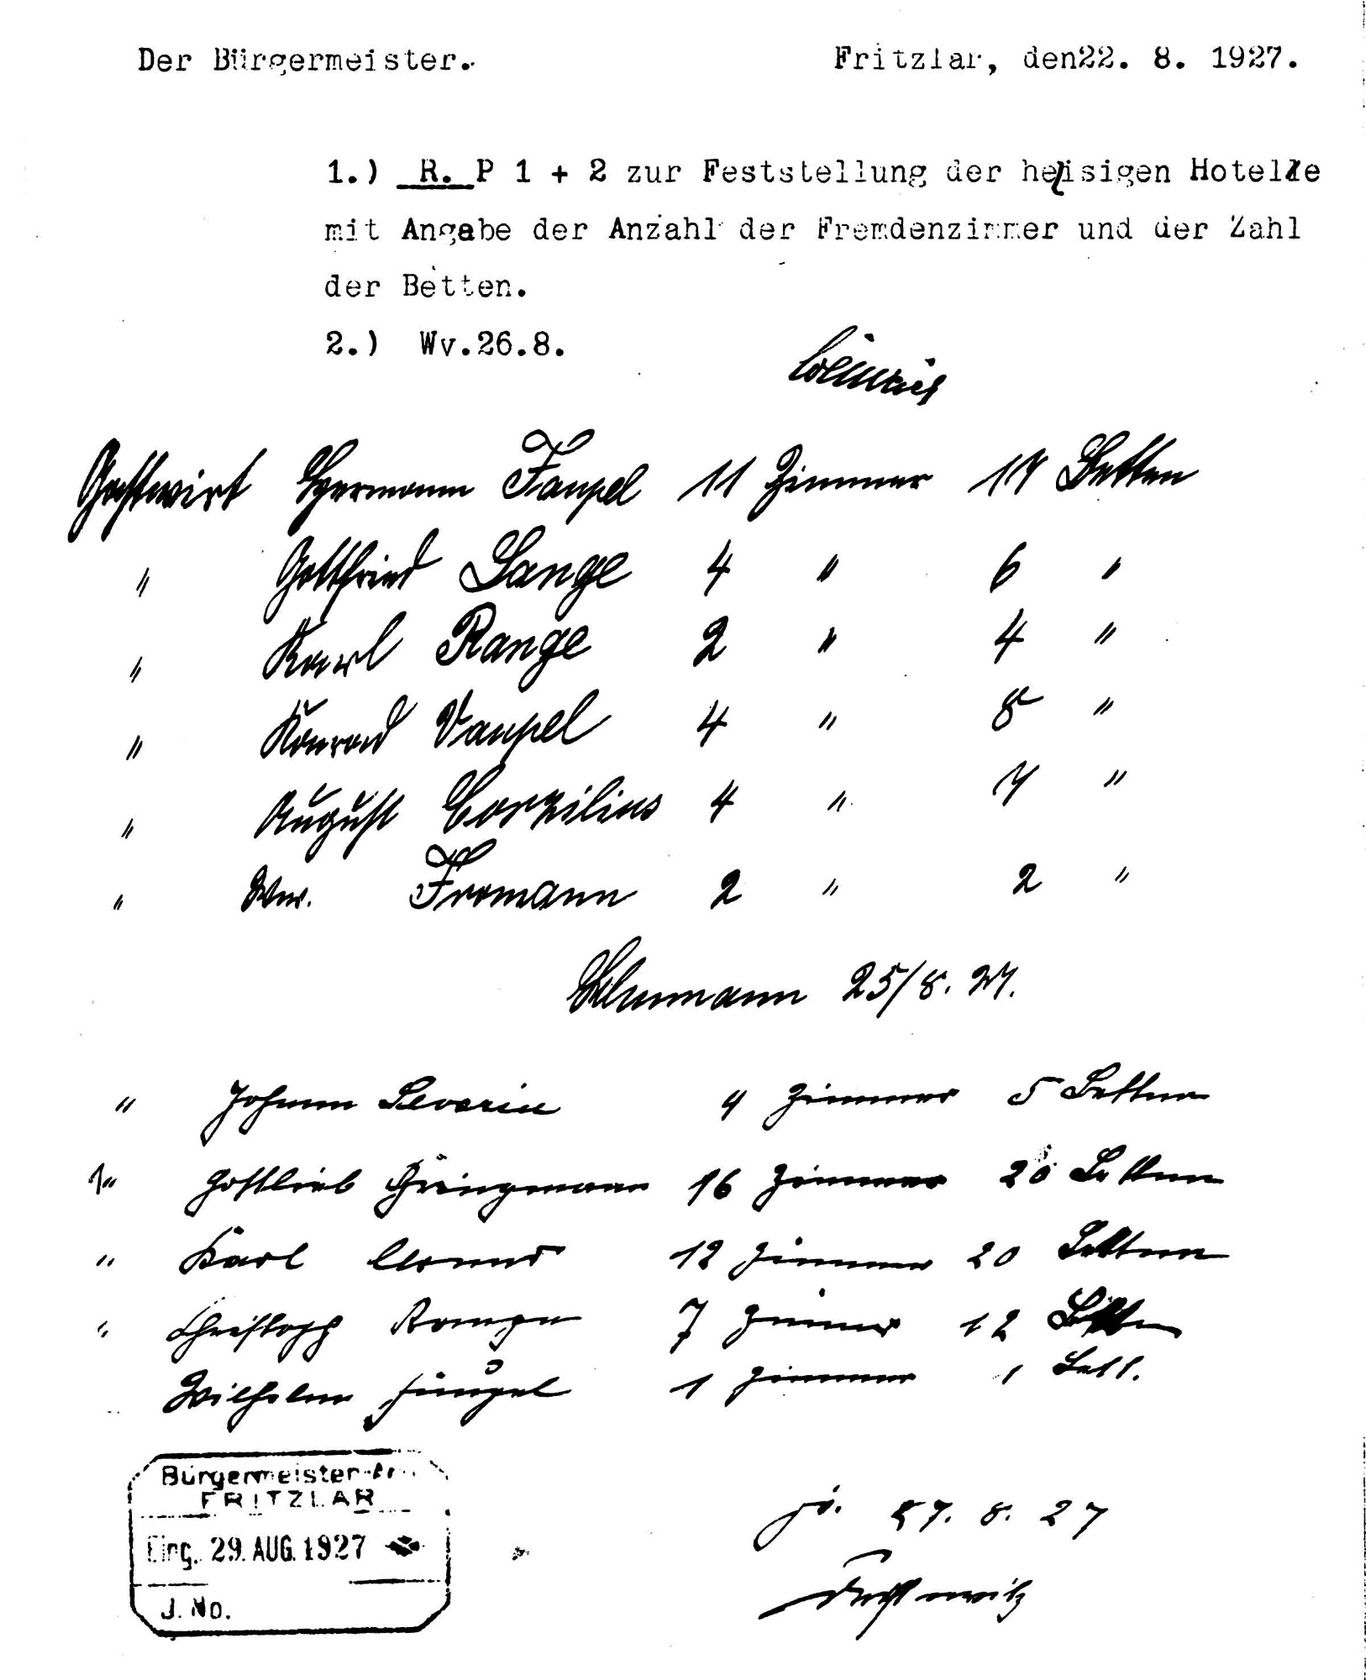 Der Bürgermeister. Fritzlar, den22. 8. 1927.
1.) R. P 1 + 2 zur Feststellung der heisigen Hotelle
mit Angabe der Anzahl der Fremdenzimmer und der Zahl
der Betten.
2.) Wv.26.8.
Gastwirt Hermann Faupel 11 Zimmer 17 Betten
" Gottfried Lange 4 " 6 "
" Karl Range 2 " 4 "
" Konrad Vaupel 4 " 8 "
" August Corzilius 4 " 7 "
" Ww. Fromann 2 " 2 "
25/8. 27.
" Johann Severin 4 Zimmer 5 Betten
" Gottlieb 16 Zimmer 20 Betten
" Karl 12 Zimmer 20 Betten
" Christoph Range 7 Zimmer 12 Betten
Wilhelm 1 Zimmer 1 Bett.
Bürgermeister-
FRITZLAR
Eing. 29. AUG. 1927
J. No.
27. 8. 27